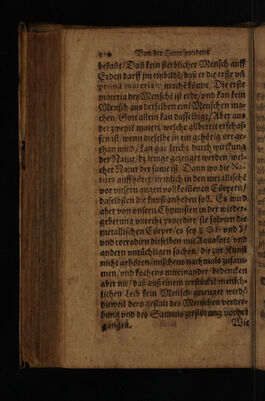 Von der Correspondentz
bekañt/ Daß kein sterblicher Mensch auff
Erden darff im einbildē/ daß er die erste uñ
prima materiam machē könne/ Die erste
materia des Menschē ist erd/ und kan kein
Mensch aus derselben einen Menschen ma-
chen/ Gott allein kan dasselbige/ Aber aus
der zweyten materi/ welche allbereit erschaf-
fen ist/ wenn dieselbe in ein ort ge-
than wird/ kan gar leicht durch würckung
der Natur/ derjenige gezeuget werden/ wel-
cher Natur der same ist. Dann wo die Na-
tur auffhört/ nemlich in den metallischē
vor unsern augen vollkommenen Cörpern/
daselbsten die kunst anheben soll. Es wird
aber von unsern Chymisten in der wieder-
geberung unrecht procedirt/ sie solviren die
metallischen Cörper/ es sey
und corrodien dieselben mit Aquafort/ und
andern untüchtigen sachen/ die zur Kunst
nicht gehören/ mischens nachmals zusam-
men/ und kochens miteinander/ bedencken
aber nit/ daß auß einem zerstückten mensch-
lichen Leib kein Mensch gezeuget werd/
dieweil dero gestalt des Menschen verder-
bung und des Samens zerstörung vorher
gangen. Wie